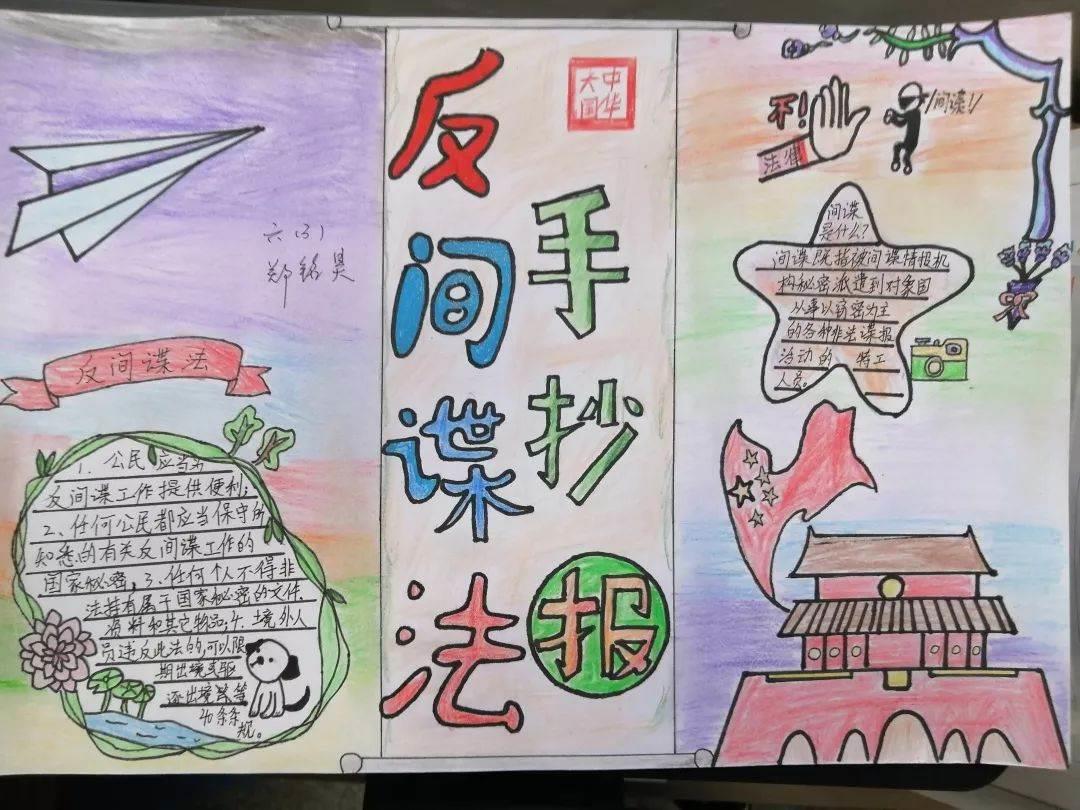 六（3）
郑铭昊
反间谍法
1、公民应当为
反间谍工作提供便利;
2、任何公民都应当保守所
知悉的有关反间谍工作的
国家秘密,3、任何个人不得非
法持有属于国家秘密的文件
资料和其它物品;4、境外人
员违反此法的,可以限
期出境或驱
逐出境等
40条条
规。
反间谍法
手抄报
大中
国华
不!
法律
间谍!
间谍
是什么?
间谍既指被间谍情报机
构秘密派遣到对象国
从事以窃密为主
的各种非法谍报
活动的特工
人员。